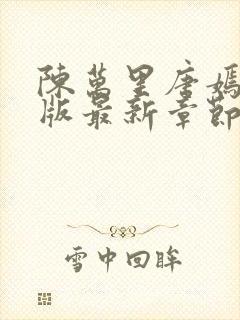 陳萬里唐嫣
版最新章節
雪中回眸